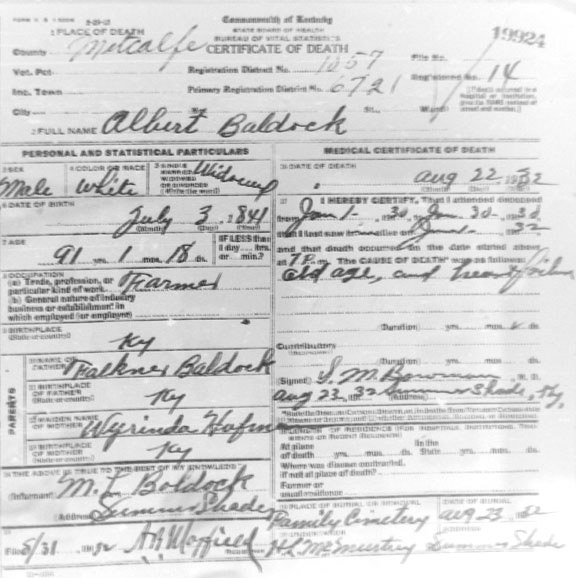 Commonwealth of Kentucky
STATE BOARD OF HEALTH
BUREAU OF VITAL STATISTICS
CERTIFICATE OF DEATH
19924
1 PLACE OF DEATH
County Metcalfe
File No.
Vot. Pct.
Registration District No. 1057
Registered No. 14
Inc. Town
Primary Registration District No. 6721
City No. St., Ward
2 FULL NAME Albert Baldock
PERSONAL AND STATISTICAL PARTICULARS
3 SEX Male
4 COLOR OR RACE White
Widowed
6 DATE OF BIRTH
July 3, 1841
7 AGE
91 yrs. 1 mos. 18 ds.
IF LESS than
1 day, hrs.
or min.?
8 OCCUPATION
(a) Trade, profession, or
particular kind of work Farmer
(b) General nature of industry
business or establishment in
which employed (or employer)
9 BIRTHPLACE
(State or country) Ky
PARENTS
10 NAME OF
FATHER Falkner Baldock
11 BIRTHPLACE
OF FATHER
(State or country) Ky
12 MAIDEN NAME
OF MOTHER
13 BIRTHPLACE
OF MOTHER
(State or country) Ky
14 THE ABOVE IS TRUE TO THE BEST OF MY KNOWLEDGE
(Informant) M. L. Baldock
(Address) Summer Shade
15
Filed 8/31 1932
Registrar
MEDICAL CERTIFICATE OF DEATH
16 DATE OF DEATH
Aug 22 1932
17 I HEREBY CERTIFY, That I attended deceased
from Jan 1-
that I last saw him alive on
and that death occurred on the date stated above
at 7 P m. The CAUSE OF DEATH was as follows:
old age, and heart failure
(Duration) yrs. mos. ds.
Contributory
(Duration) yrs. mos. ds.
(Signed) S. M. Bowman M. D.
Aug 23, 32 (Address) Summer Shade, Ky.
18 LENGTH OF RESIDENCE
At place
of death yrs. mos. ds.
In the
State yrs. mos. ds.
Where was disease contracted,
if not at place of death?
Former or
usual residence
19 PLACE OF BURIAL OR REMOVAL
Family Cemetery
DATE OF BURIAL
Aug 23 1932
20 UNDERTAKER
H L McMurtrey
Summer Shade